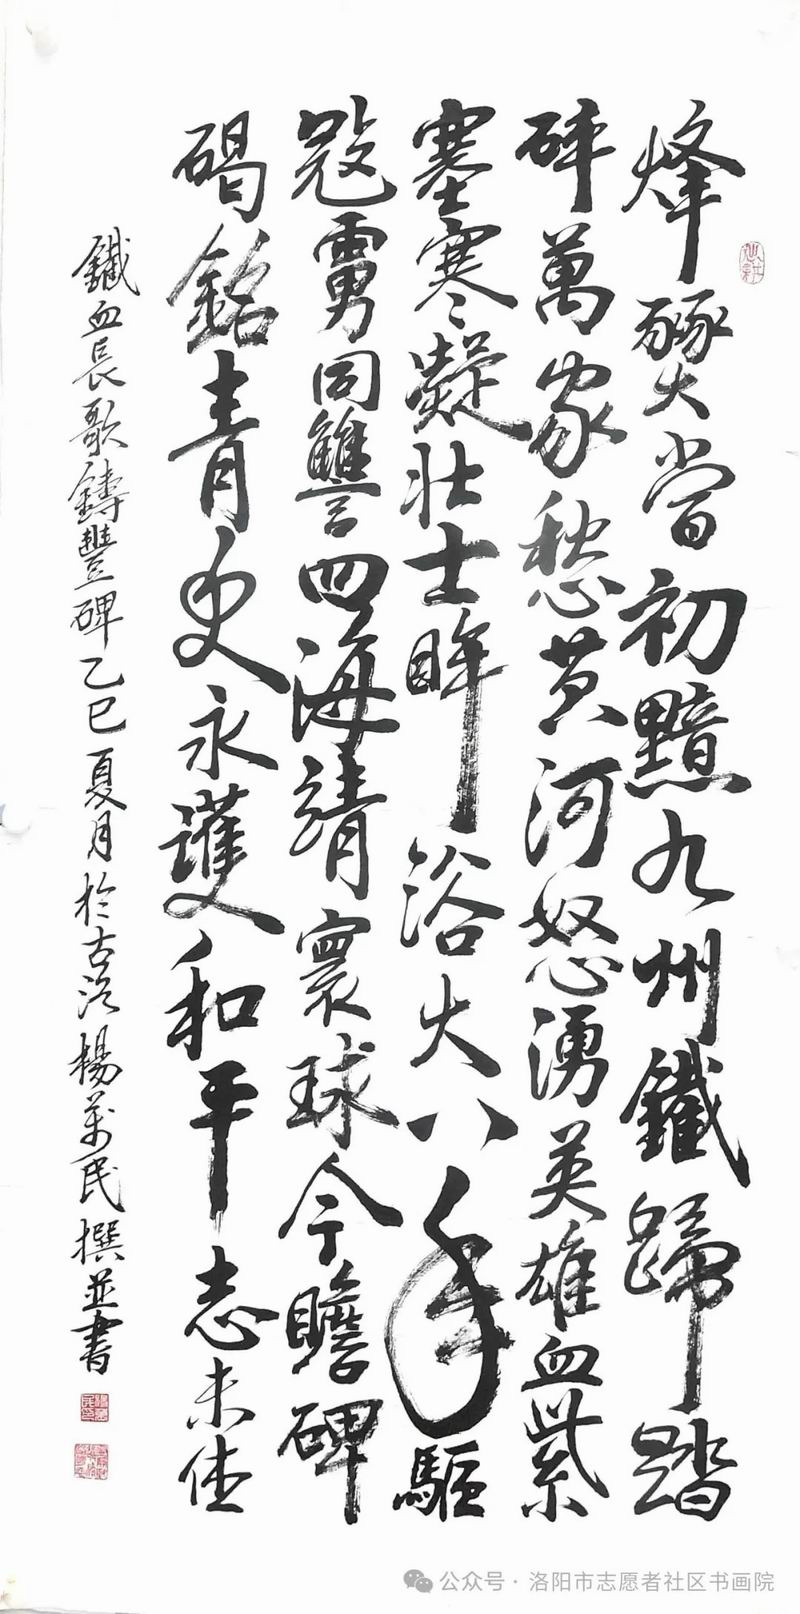 烽燹當初黯九州鐵蹄踏
碎萬家愁黃河怒湧英雄血紫
塞寒凝壯士眸浴火八年驅
寇虜同讐四海靖寰球今瞻碑
碣銘青史永護和平志未休
鐵血長歌鑄豐碑乙巳夏月於古洛楊萬民撰並書
公众号·洛阳市志愿者社区书画院